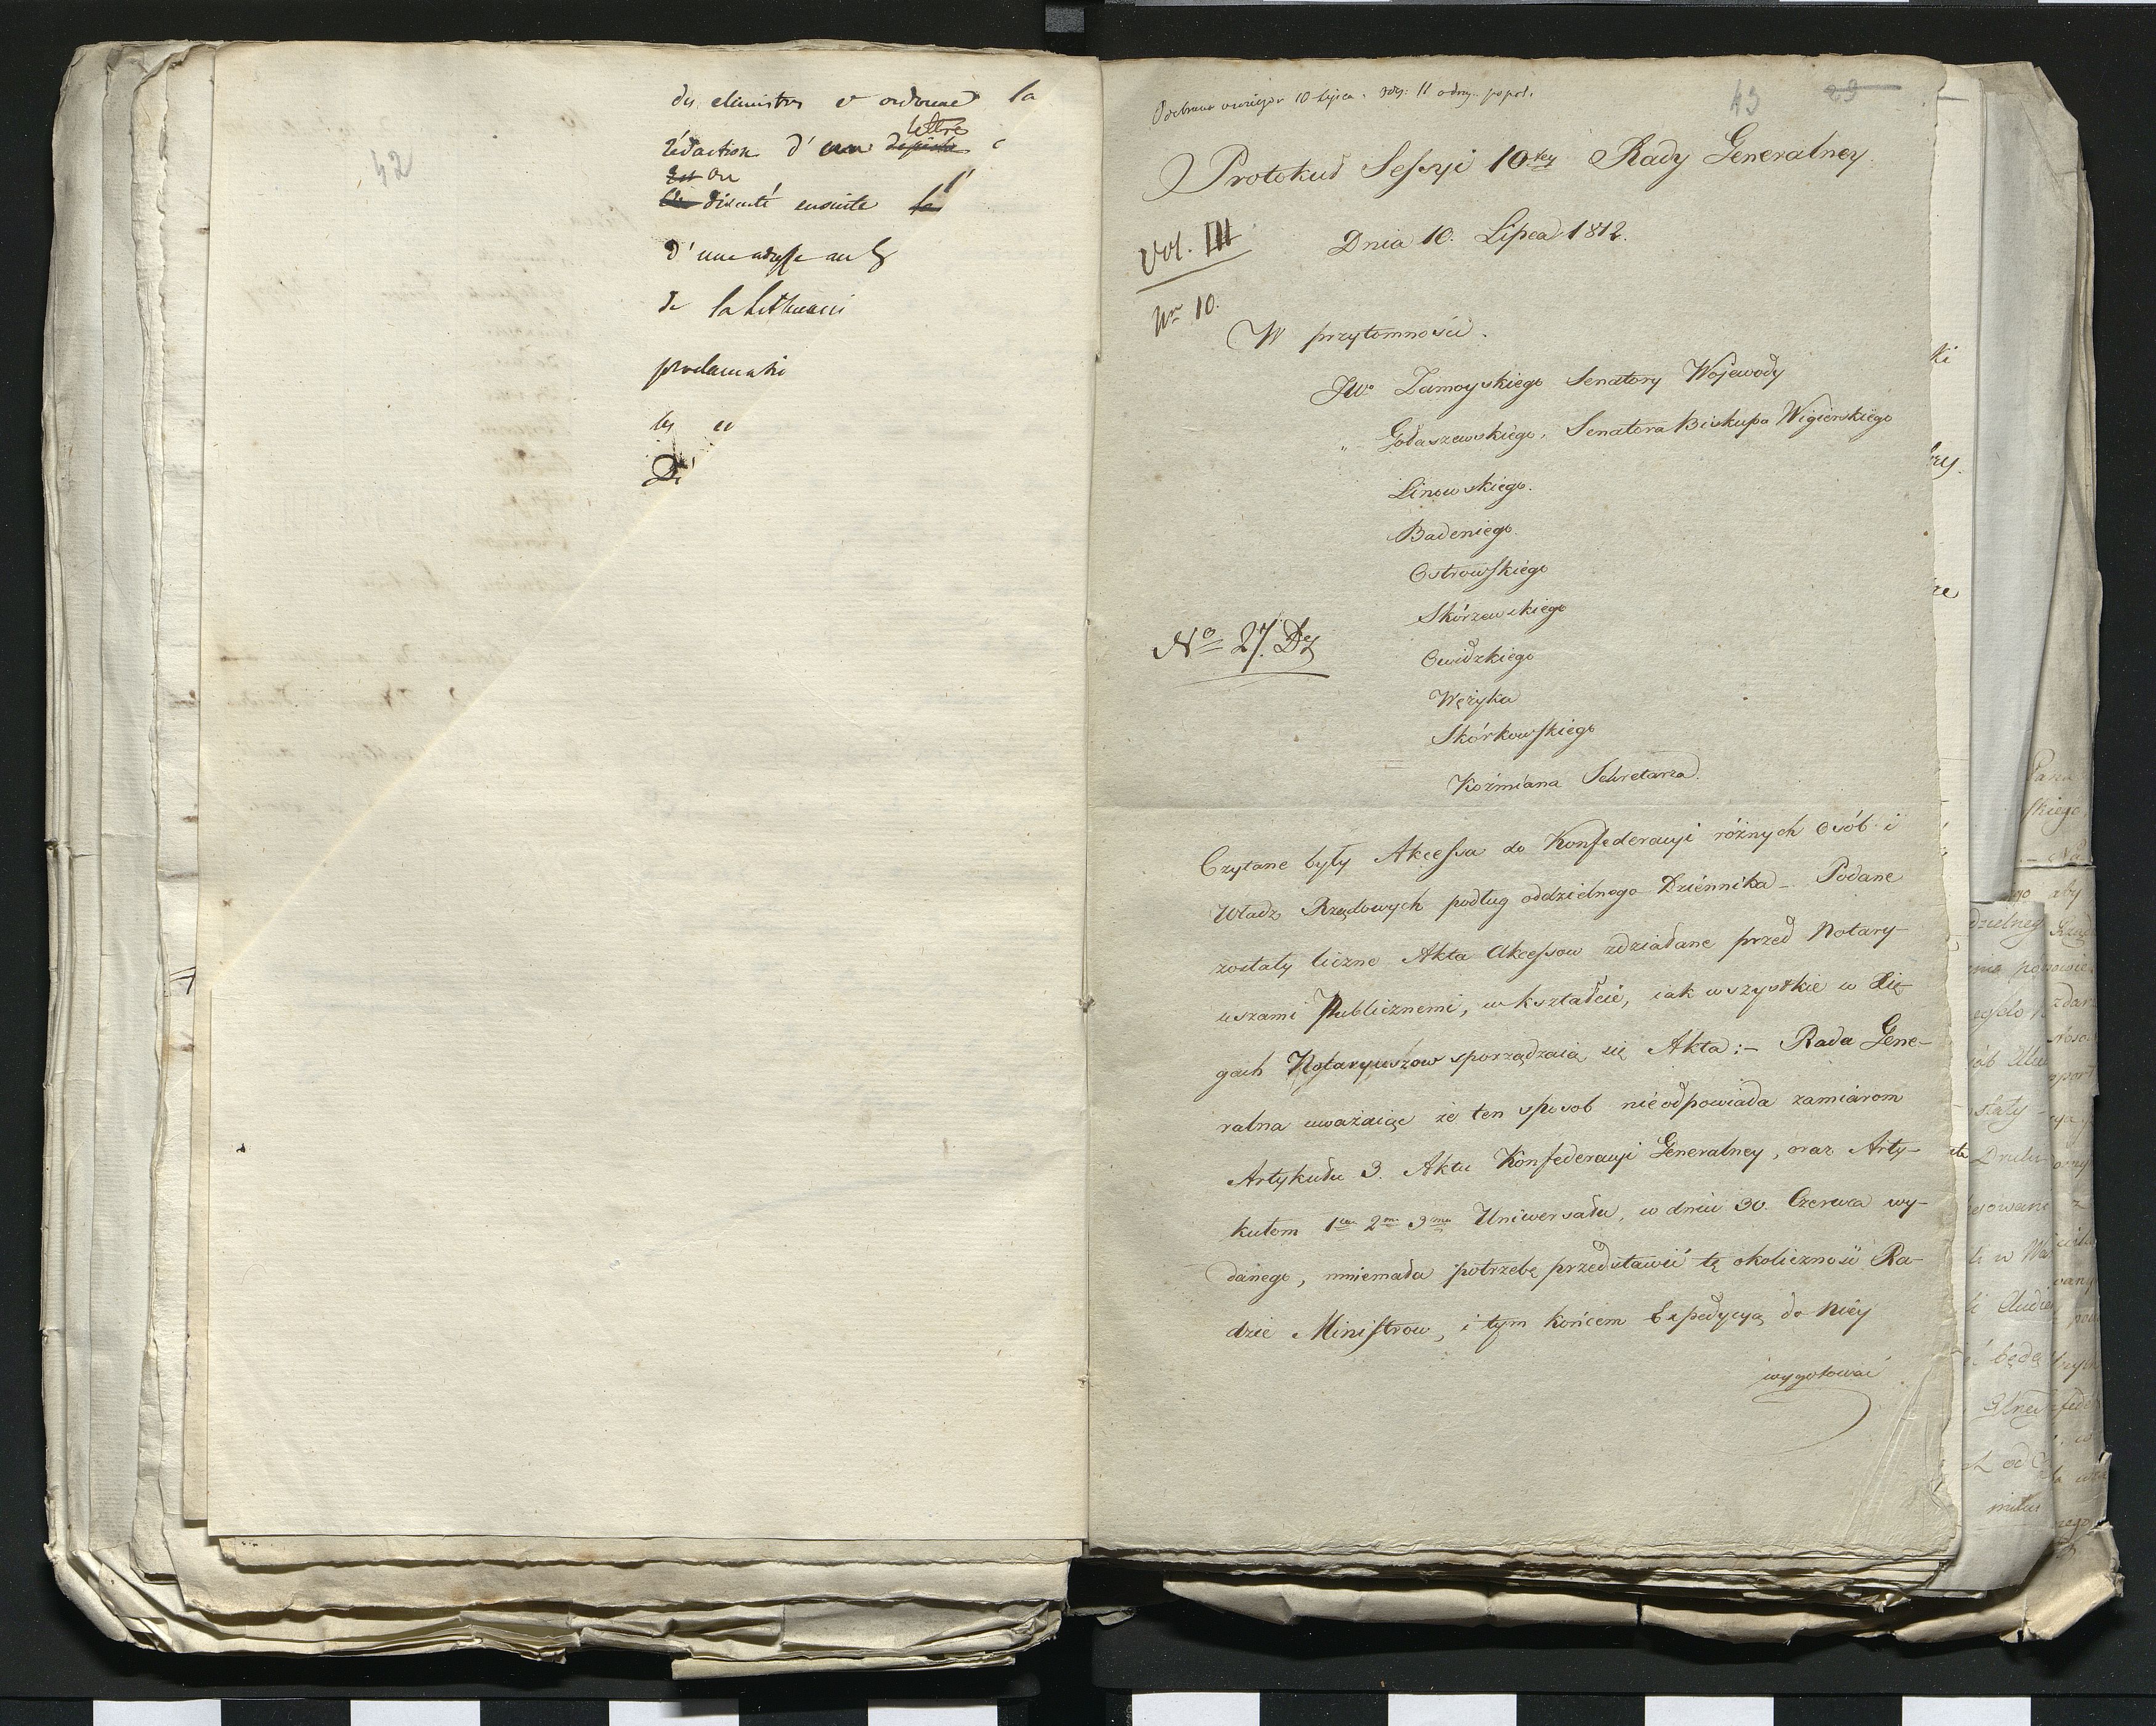 42
des ministres et ordonné la
lettre
rédaction d'une
on
discuté ensuite
d'une adresse au
de la Lithuani
proclamatio
les
43 29
10 Lipca
Protokuł Sessyi 10tey Rady Generalney
Dnia 10. Lipca 1812.
Vol. III
Nr 10.
W przytomności.
JW. Zamoyskiego Senatory Wojewody
" Gołaszewskiego, Senatora Biskupa Wigierskiego
Linowskiego.
Badeniego.
Ostrowskiego
Skórzewskiego
No 27. Dz
Owidzkiego
Wężyka
Skórkowskiego
Koźmiana Sekretarza.
Czytane były Akcessa do Konfederacyi różnych Osób i
Władz Rządowych podług oddzielnego Dziennika – Podane
zostały liczne Akta Akcessow zdziałane przed Notary-
uszami Publicznemi, w kształcie, iak wszystkie w Xię-
gach Notaryuszow sporządzaią się Akta :– Rada Gene-
ralna uważaiąc że ten sposob nieodpowiada zamiarom
Artykułu 3. Aktu Konfederacyi Generalney, oraz Arty-
kułom 1mu 2mu 3mu Uniwersału, w dniu 30. Czerwca wy-
danego, mniemała potrzebę przedstawić tę okoliczność Ra-
dzie Ministrow, i tym końcem Expedycyą do Niey
wygotować